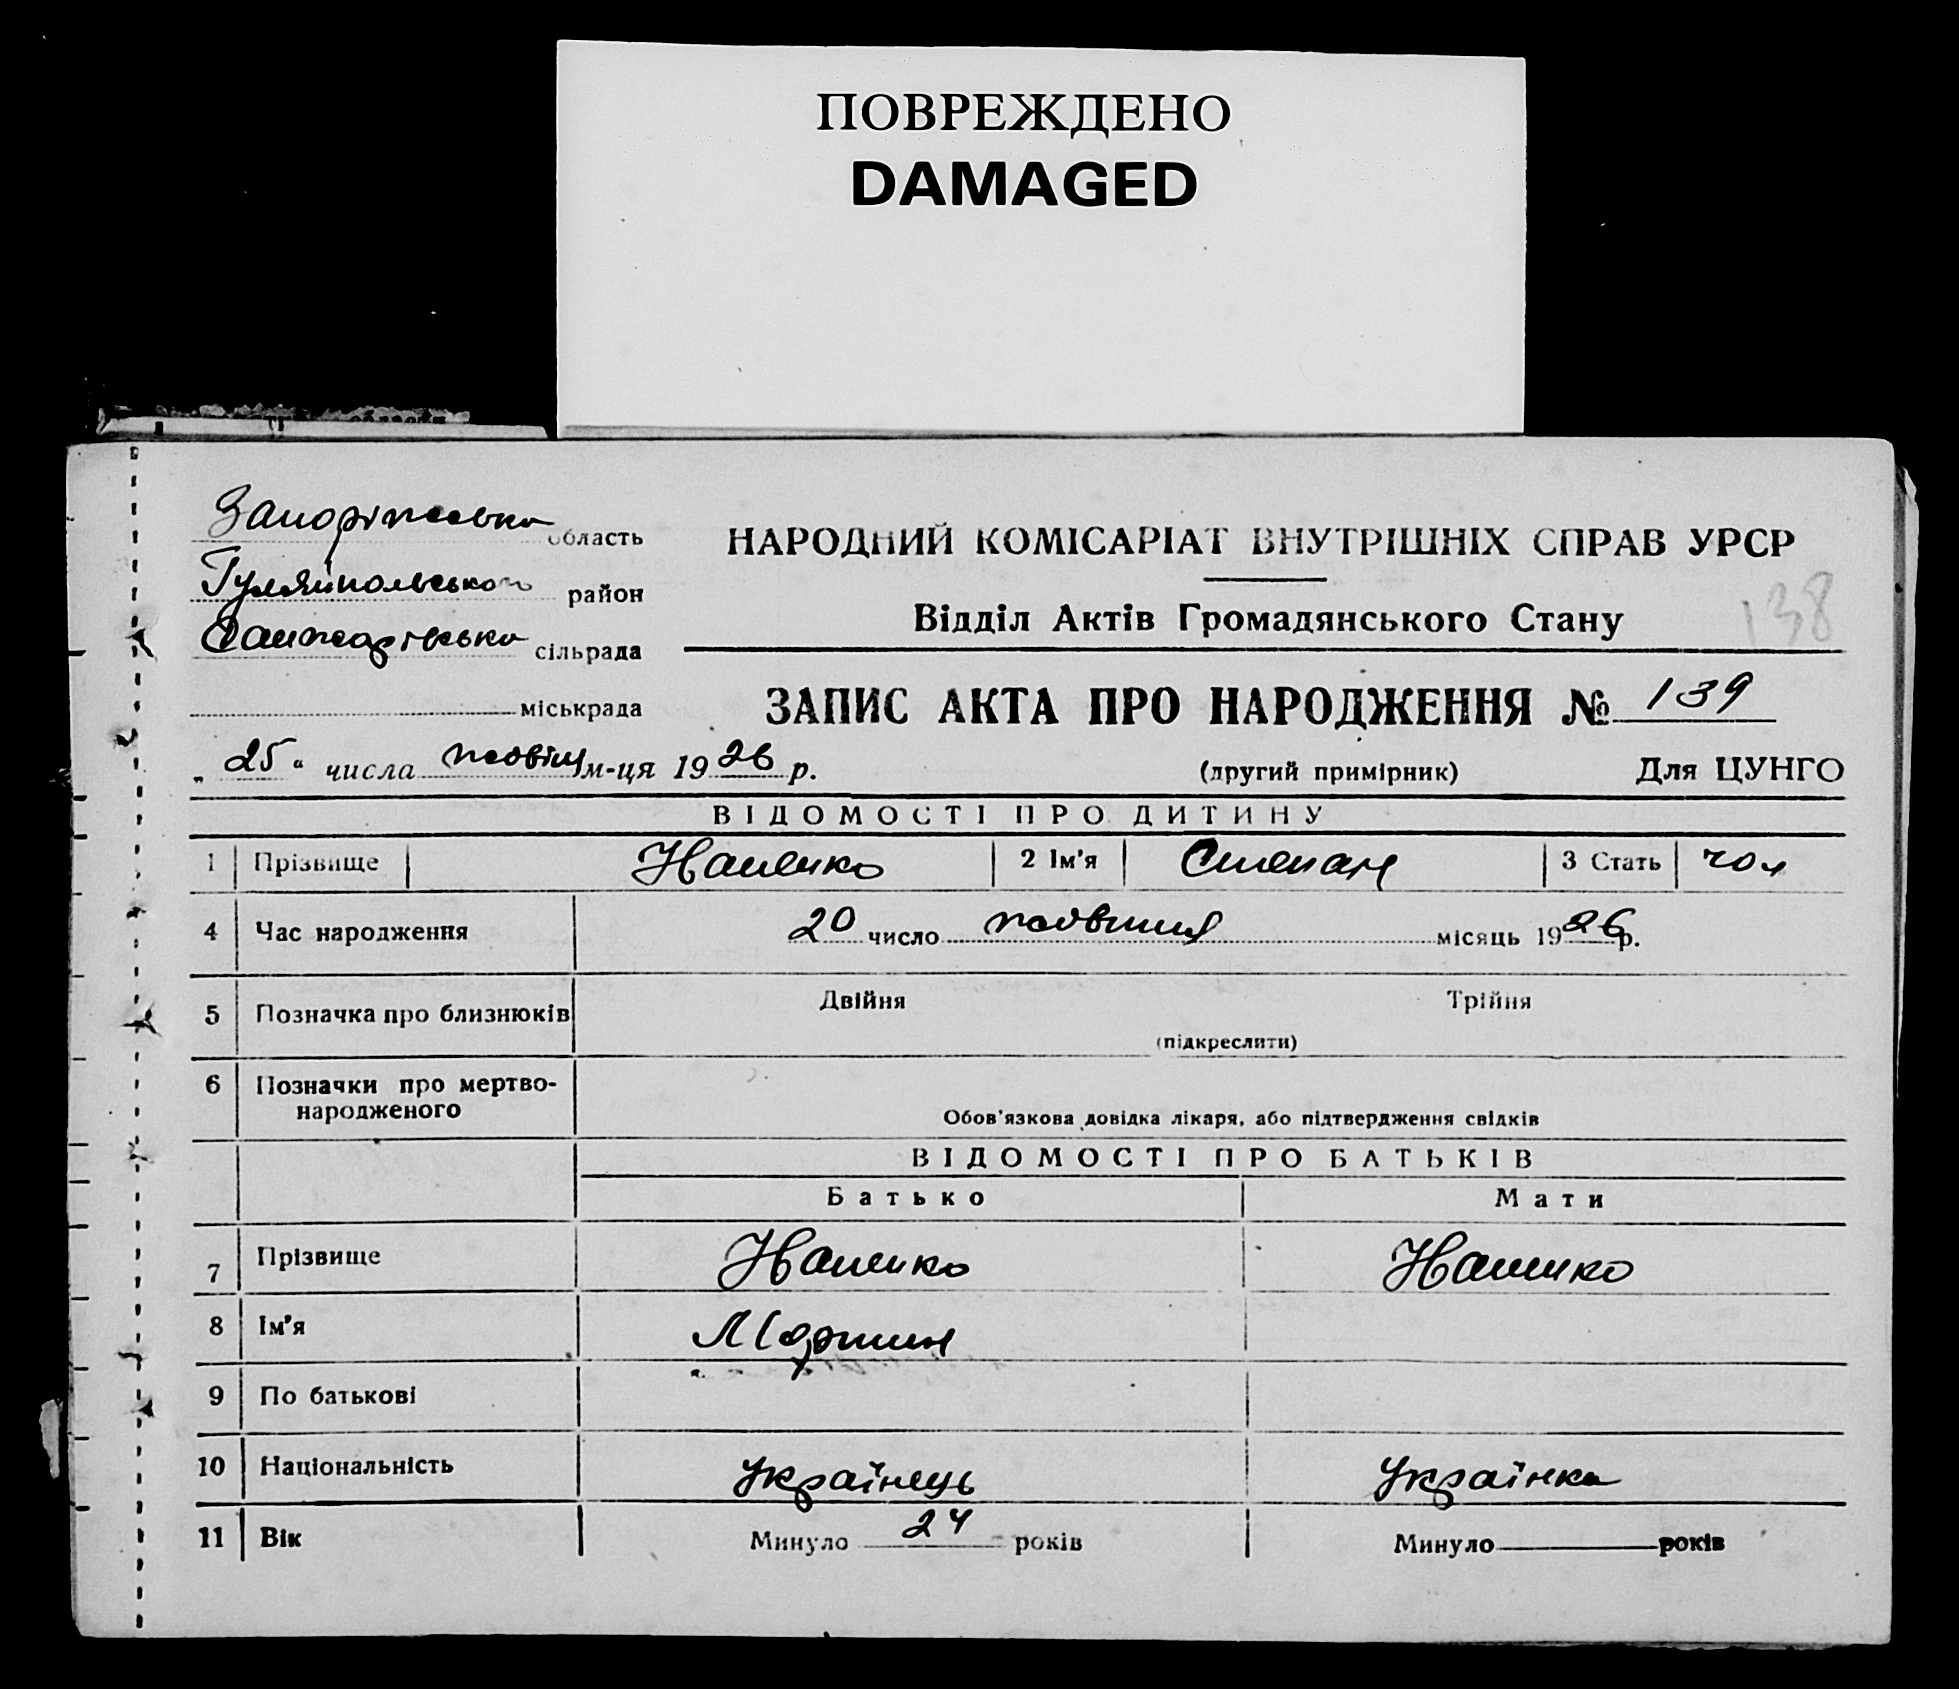 ПОВРЕЖДЕНО
DAMAGED
Запоріжська область
Гуляйпольського район
Санжарівська сільрада
міськрада
НАРОДНИЙ КОМІСАРІАТ ВНУТРІШНІХ СПРАВ УРСР
Відділ Актів Громадянського Стану
138
ЗАПИС АКТА ПРО НАРОДЖЕННЯ № 139
„25“ числа жовтня м-ця 1926 р.
(другий примірник) Для ЦУНГО
ВІДОМОСТІ ПРО ДИТИНУ
1 Прізвище 2 Ім'я Степан 3 Стать чол
4 Час народження 20 число жовтня місяць 1926 р.
5 Позначка про близнюків Двійня Трійня
(підкреслити)
6 Позначки про мертво-
народженого
Обов'язкова довідка лікаря, або підтвердження свідків
ВІДОМОСТІ ПРО БАТЬКІВ
Батько Мати
7 Прізвище
8 Ім'я Мартин
9 По батькові
10 Національність Українець Українка
11 Вік Минуло 24 років Минуло років